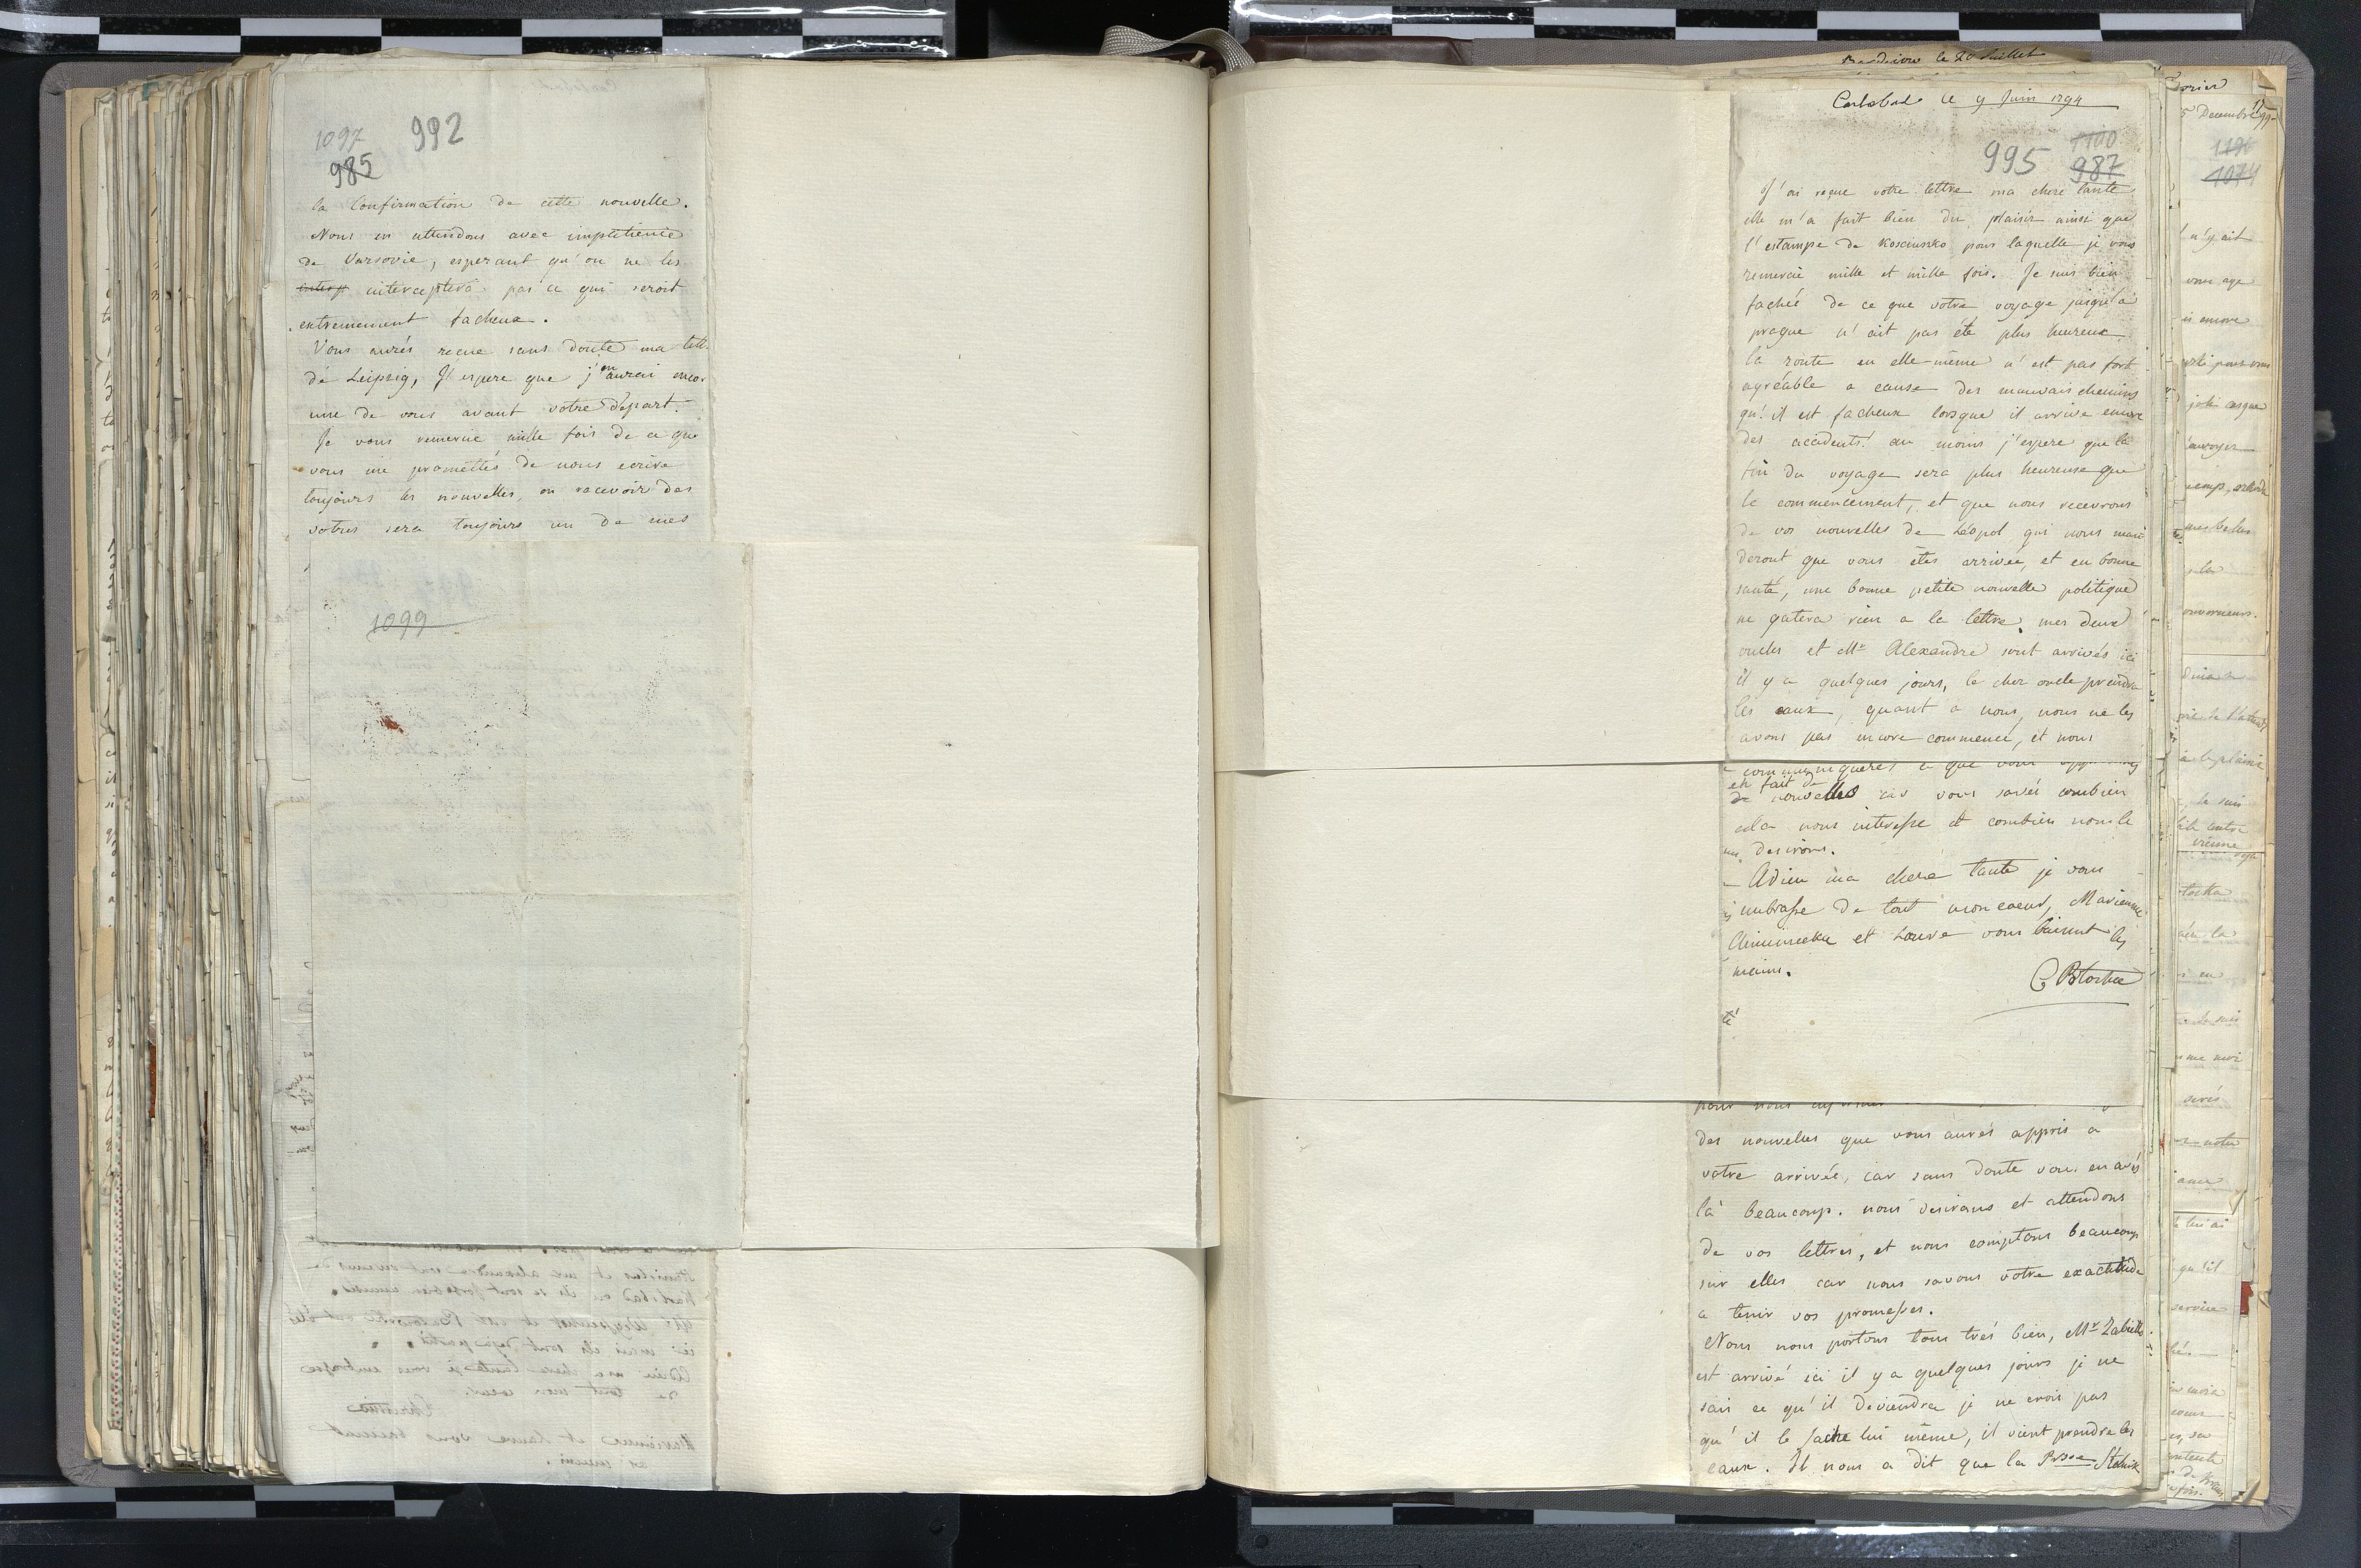 1097 992
985
la Confirmation de cette nouvelle.
Nous en attendons avec impatience
de Varsovie, esperant qu'on ne les
interceptera pas ce qui seroit
extremement facheux.
Vous aurés recue sans doute ma lett
de Leipsig, J'espere que j'en aurai encor
une de vous avant votre depart.
Je vous remercie mille fois de ce que
vous me promettés de nous ecrire
toujours les nouvelles, en recevoir des
votres sera toujours un de mes
1099
Stanislas et mr alexandre sont revenus de
Karlsbad ou ils se sont fort bien amusés.
ici mais ils sont deja partis.
Adieu ma chere tante je vous embrasse
de tout mon coeur.
Christine
Marienne et Laure vous baisent
les mains.
Bardiow le 20 Juillet
Carlsbad ce 9 Juin 1794
1100
995 987
J'ai reçue votre lettre ma chere tante
elle m'a fait bien du plaisir ainsi que
l'estampe de Kosciuszko pour laquelle je vous
remercie mille et mille fois. Je suis bien
fachée de ce que votre voyage jusqu'a
prague n'ait pas été plus heureux
la route en elle même n'est pas fort
agréable a cause des mauvais chemins
qu'il est facheux lorsque il arrive encore
des accidents! au moins j'espere que la
fin du voyage sera plus heureuse que
le commencement, et que nous recevrons
de vos nouvelles de Léopol qui nous man
deront que vous êtes arrivée, et en bonne
santé, une bonne petite nouvelle politique
ne gatera rien a la lettre. mes deux
oncles et Mr Alexandre sont arrivés ici
il y a quelques jours, le cher oncle prendra
les eaux, quant a nous, nous ne les
avons pas encore commencé, et nous
communiqueres ce que vous
en fait de
de nouvelles car vous savés combien
cela nous interesse et combien nous le
desirons.
Adieu ma chere tante je vous
embrasse de tout mon coeur, Marienne
et Laure vous baisent les
mains.
té
pour nous
des nouvelles que vous aurés appris a
votre arrivée, car sans doute vous en avés
là beaucoup. nous desirons et attendons
de vos lettres, et nous comptons beaucoup
sur elles car nous savons votre exactitude
a tenir vos promesses.
Nous nous portons tous trés bien, Mr Zabiello
est arrivé ici il y a quelques jours je ne
sais ce qu'il deviendra je ne crois pas
qu'il le sache lui même, il vient prendre les
eaux. Il nous a dit que la Psse
5 Decembre
n'y ait
encore
joli casque
envoyer
gouverneurs.
je suis
contre
vienne
en
je suis
notre
lui ai
qu'il
service